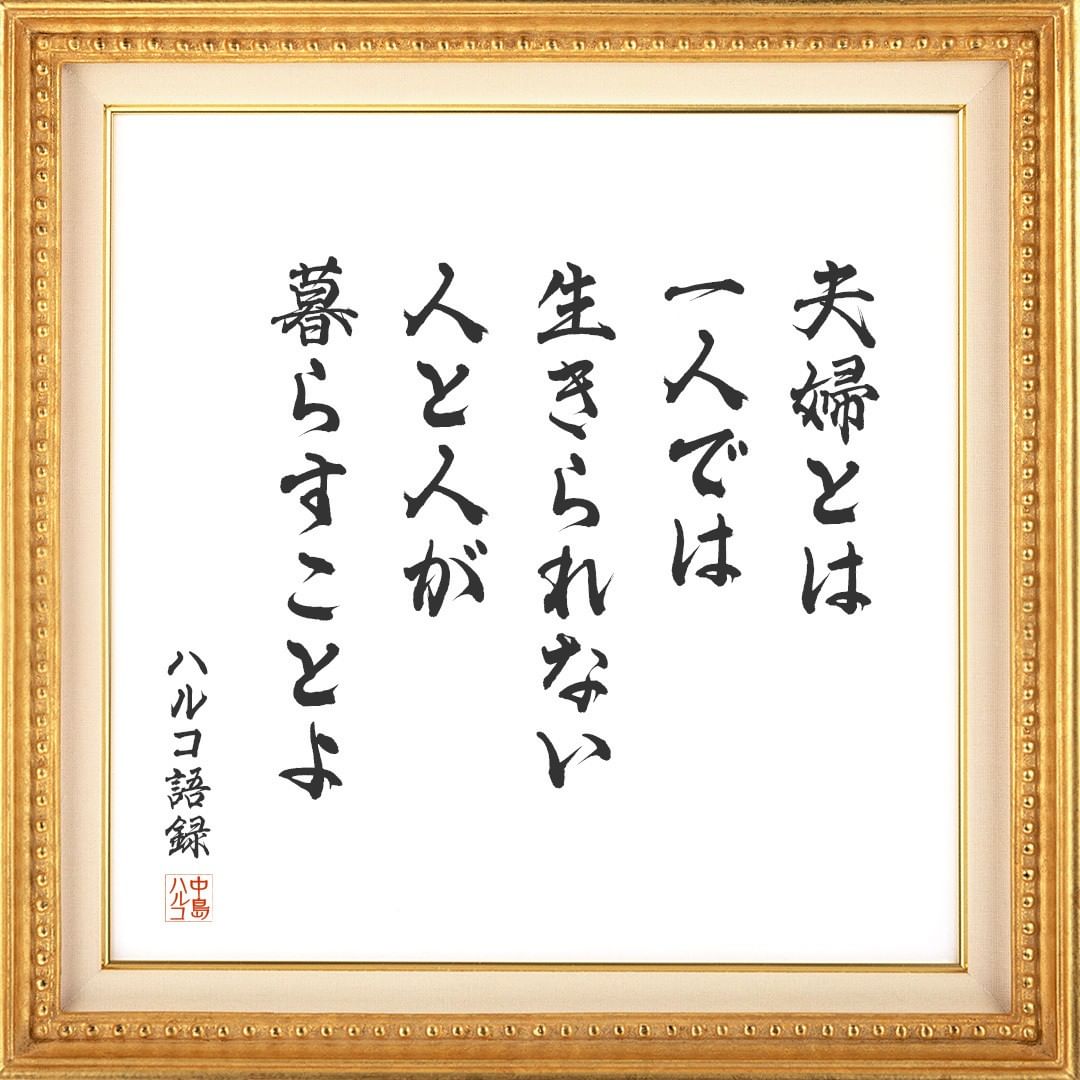 夫婦とは
一人では
生きられない
人と人が
暮らすことよ
ハルコ語録
中島
ハルコ